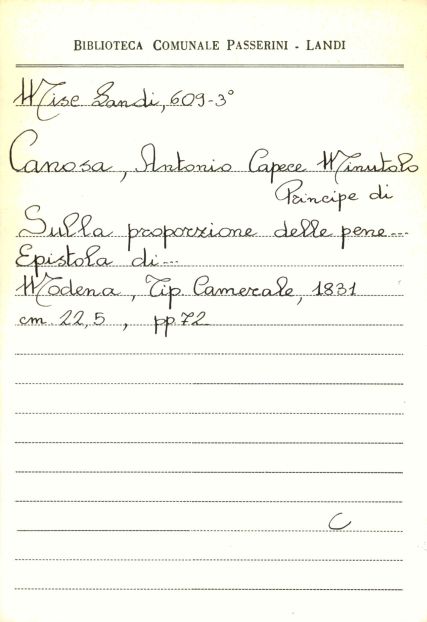 BIBLIOTECA COMUNALE PASSERINI - LANDI
Misc Landi, 609-3°
Canosa, Antonio Capece Minutolo
Principe di
Sulla proporzione delle pene...
Epistola di...
Modena, Tip. Camerale, 1831
cm. 22,5 , pp. 72
C